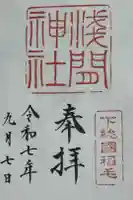 浅間神社
下総國稲毛
奉拝
令和七年
九月七日